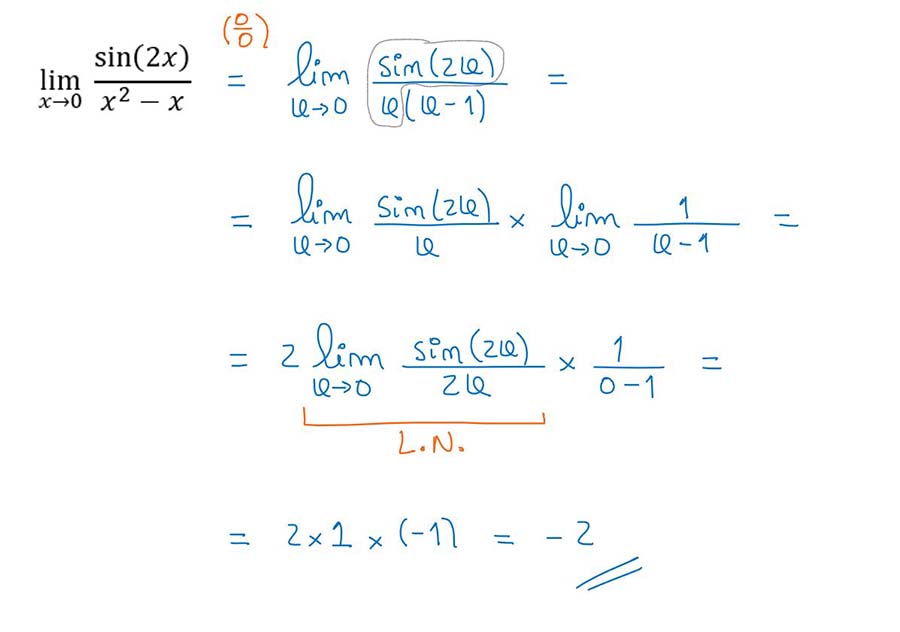 lim x→0 sin(2x)/(x² − x) (0/0) = lim x→0 sin(2x)/(x(x−1)) =
= lim x→0 sin(2x)/x × lim x→0 1/(x−1) =
= 2 lim x→0 sin(2x)/(2x) × 1/(0−1) =
L.N.
= 2 × 1 × (−1) = −2